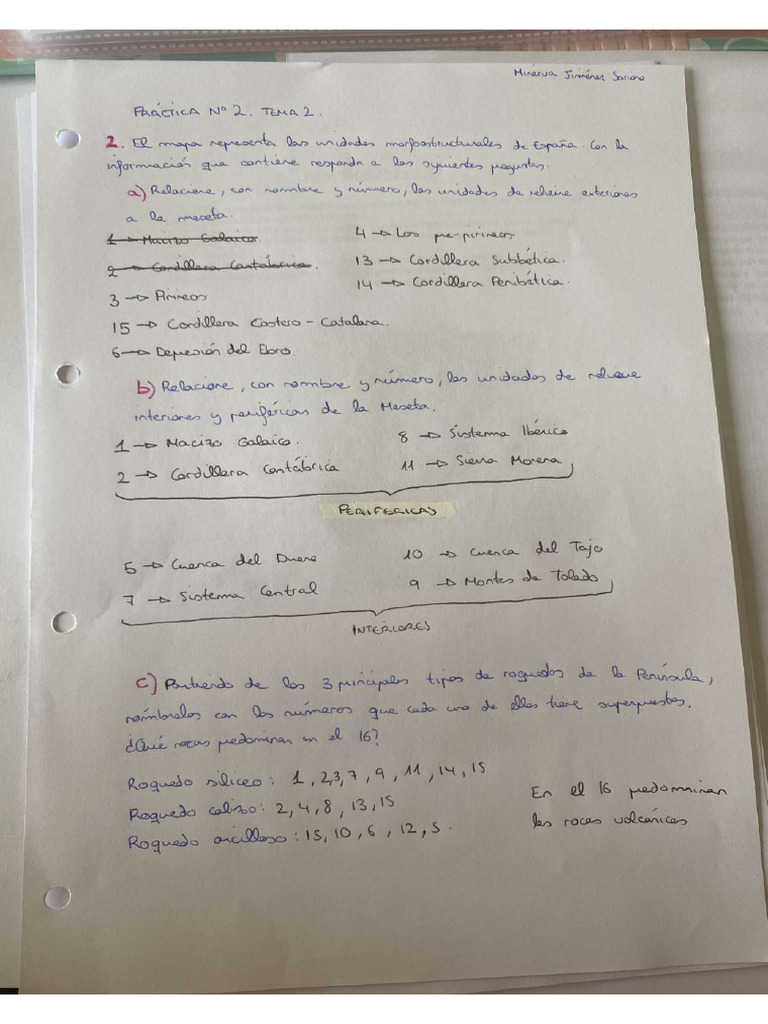 Minerva Jiménez Soriano
PRÁCTICA Nº 2. TEMA 2.
2. El mapa representa las unidades morfoestructurales de España. Con la
información que contiene responda a las siguientes preguntas:
a) Relacione, con nombre y número, las unidades de relieve exteriores
a la meseta.
1 → Macizo Galaico.
2 → Cordillera Cantábrica.
3 → Pirineos
15 → Cordillera Costero - Catalana.
6 → Depresión del Ebro.
4 → Los pre-pirineos.
13 → Cordillera Subbética.
14 → Cordillera Penibética.
b) Relacione, con nombre y número, las unidades de relieve
interiores y periféricas de la Meseta.
1 → Macizo Galaico.
2 → Cordillera Cantábrica
8 → Sistema Ibérico
11 → Sierra Morena
PERIFERICAS
5 → Cuenca del Duero
7 → Sistema Central
10 → Cuenca del Tajo
9 → Montes de Toledo
INTERIORES
c) Partiendo de los 3 principales tipos de roquedos de la Península,
nómbrelos con los números que cada uno de ellos tiene superpuestos.
¿Qué rocas predominan en el 16?
Roquedo silíceo: 1, 2,3, 7, 9, 11, 14, 15
Roquedo calizo: 2, 4, 8, 13, 15
Roquedo arcilloso: 15, 10, 6, 12, 5.
En el 16 predominan
las rocas volcánicas